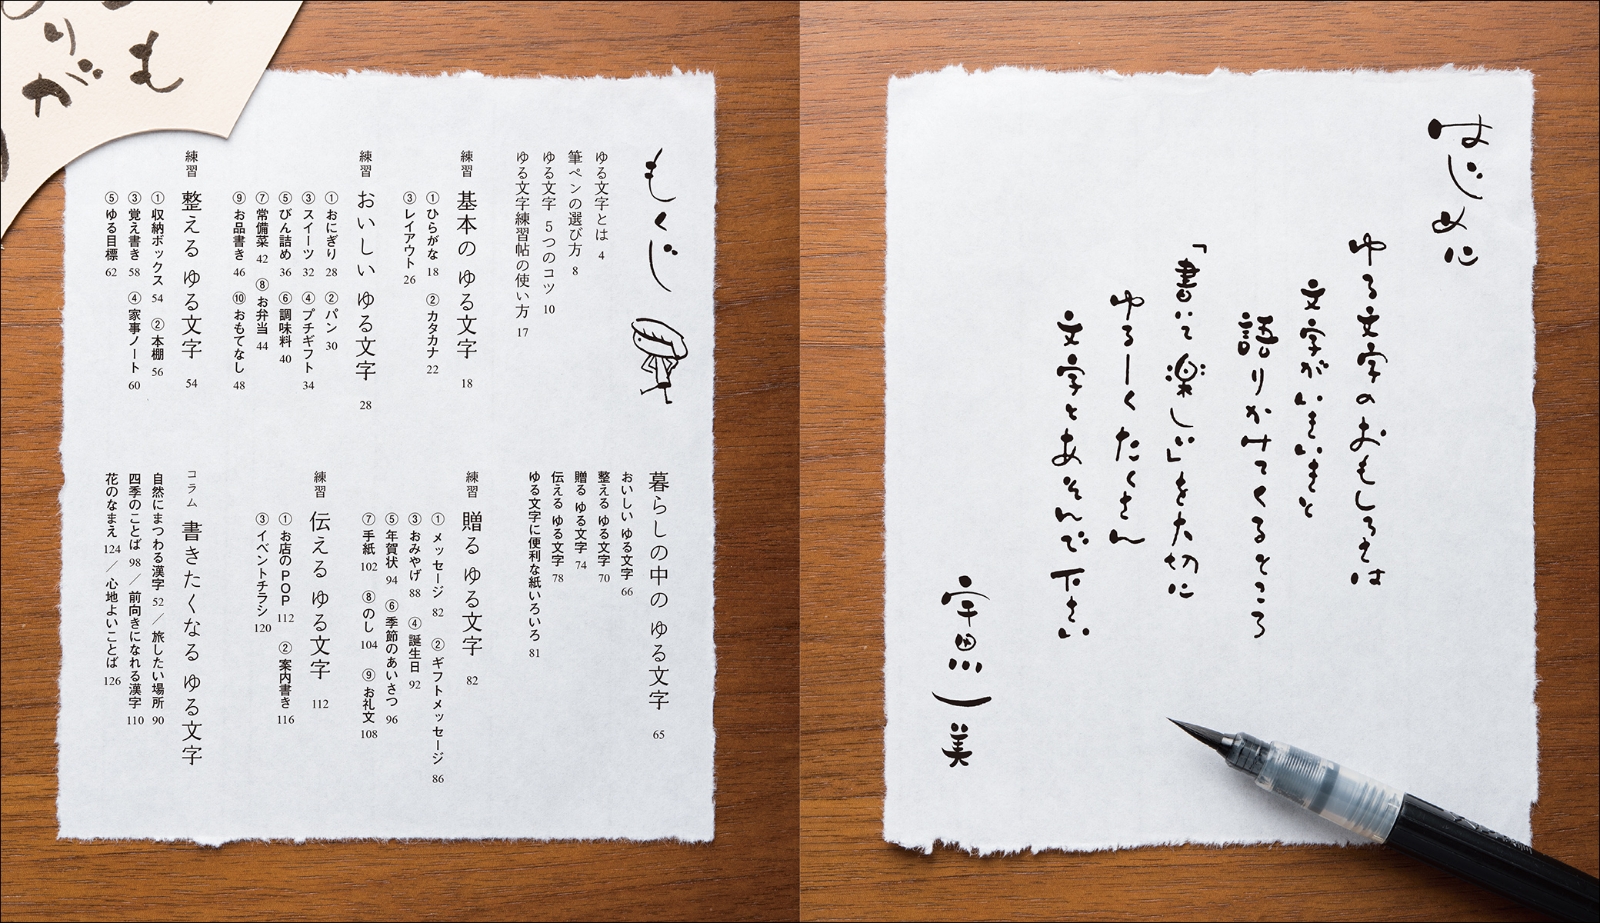 はじめに
ゆる文字のおもしろさは
文字がいきいきと
語りかけてくるところ
「書いて楽しい」を大切に
ゆるーくたくさん
文字とあそんで下さい
宇田川一美
もくじ
ゆる文字とは 4
筆ペンの選び方 8
ゆる文字 5つのコツ 10
ゆる文字練習帖の使い方 17
練習 基本の ゆる文字 18
①ひらがな 18 ②カタカナ 22
③レイアウト 26
練習 おいしい ゆる文字 28
①おにぎり 28 ②パン 30
③スイーツ 32 ④プチギフト 34
⑤びん詰め 36 ⑥調味料 40
⑦常備菜 42 ⑧お弁当 44
⑨お品書き 46 ⑩おもてなし 48
練習 整える ゆる文字 54
①収納ボックス 54 ②本棚 56
③覚え書き 58 ④家事ノート 60
⑤ゆる目標 62
暮らしの中の ゆる文字 65
おいしい ゆる文字 66
整える ゆる文字 70
贈る ゆる文字 74
伝える ゆる文字 78
ゆる文字に便利な紙いろいろ 81
練習 贈る ゆる文字 82
①メッセージ 82 ②ギフトメッセージ 86
③おみやげ 88 ④誕生日 92
⑤年賀状 94 ⑥季節のあいさつ 96
⑦手紙 102 ⑧のし 104 ⑨お礼文 108
練習 伝える ゆる文字 112
①お店のPOP 112 ②案内書き 116
③イベントチラシ 120
コラム 書きたくなる ゆる文字
自然にまつわる漢字 52／旅したい場所 90
四季のことば 98／前向きになれる漢字 110
花のなまえ 124／心地よいことば 126
も
りが